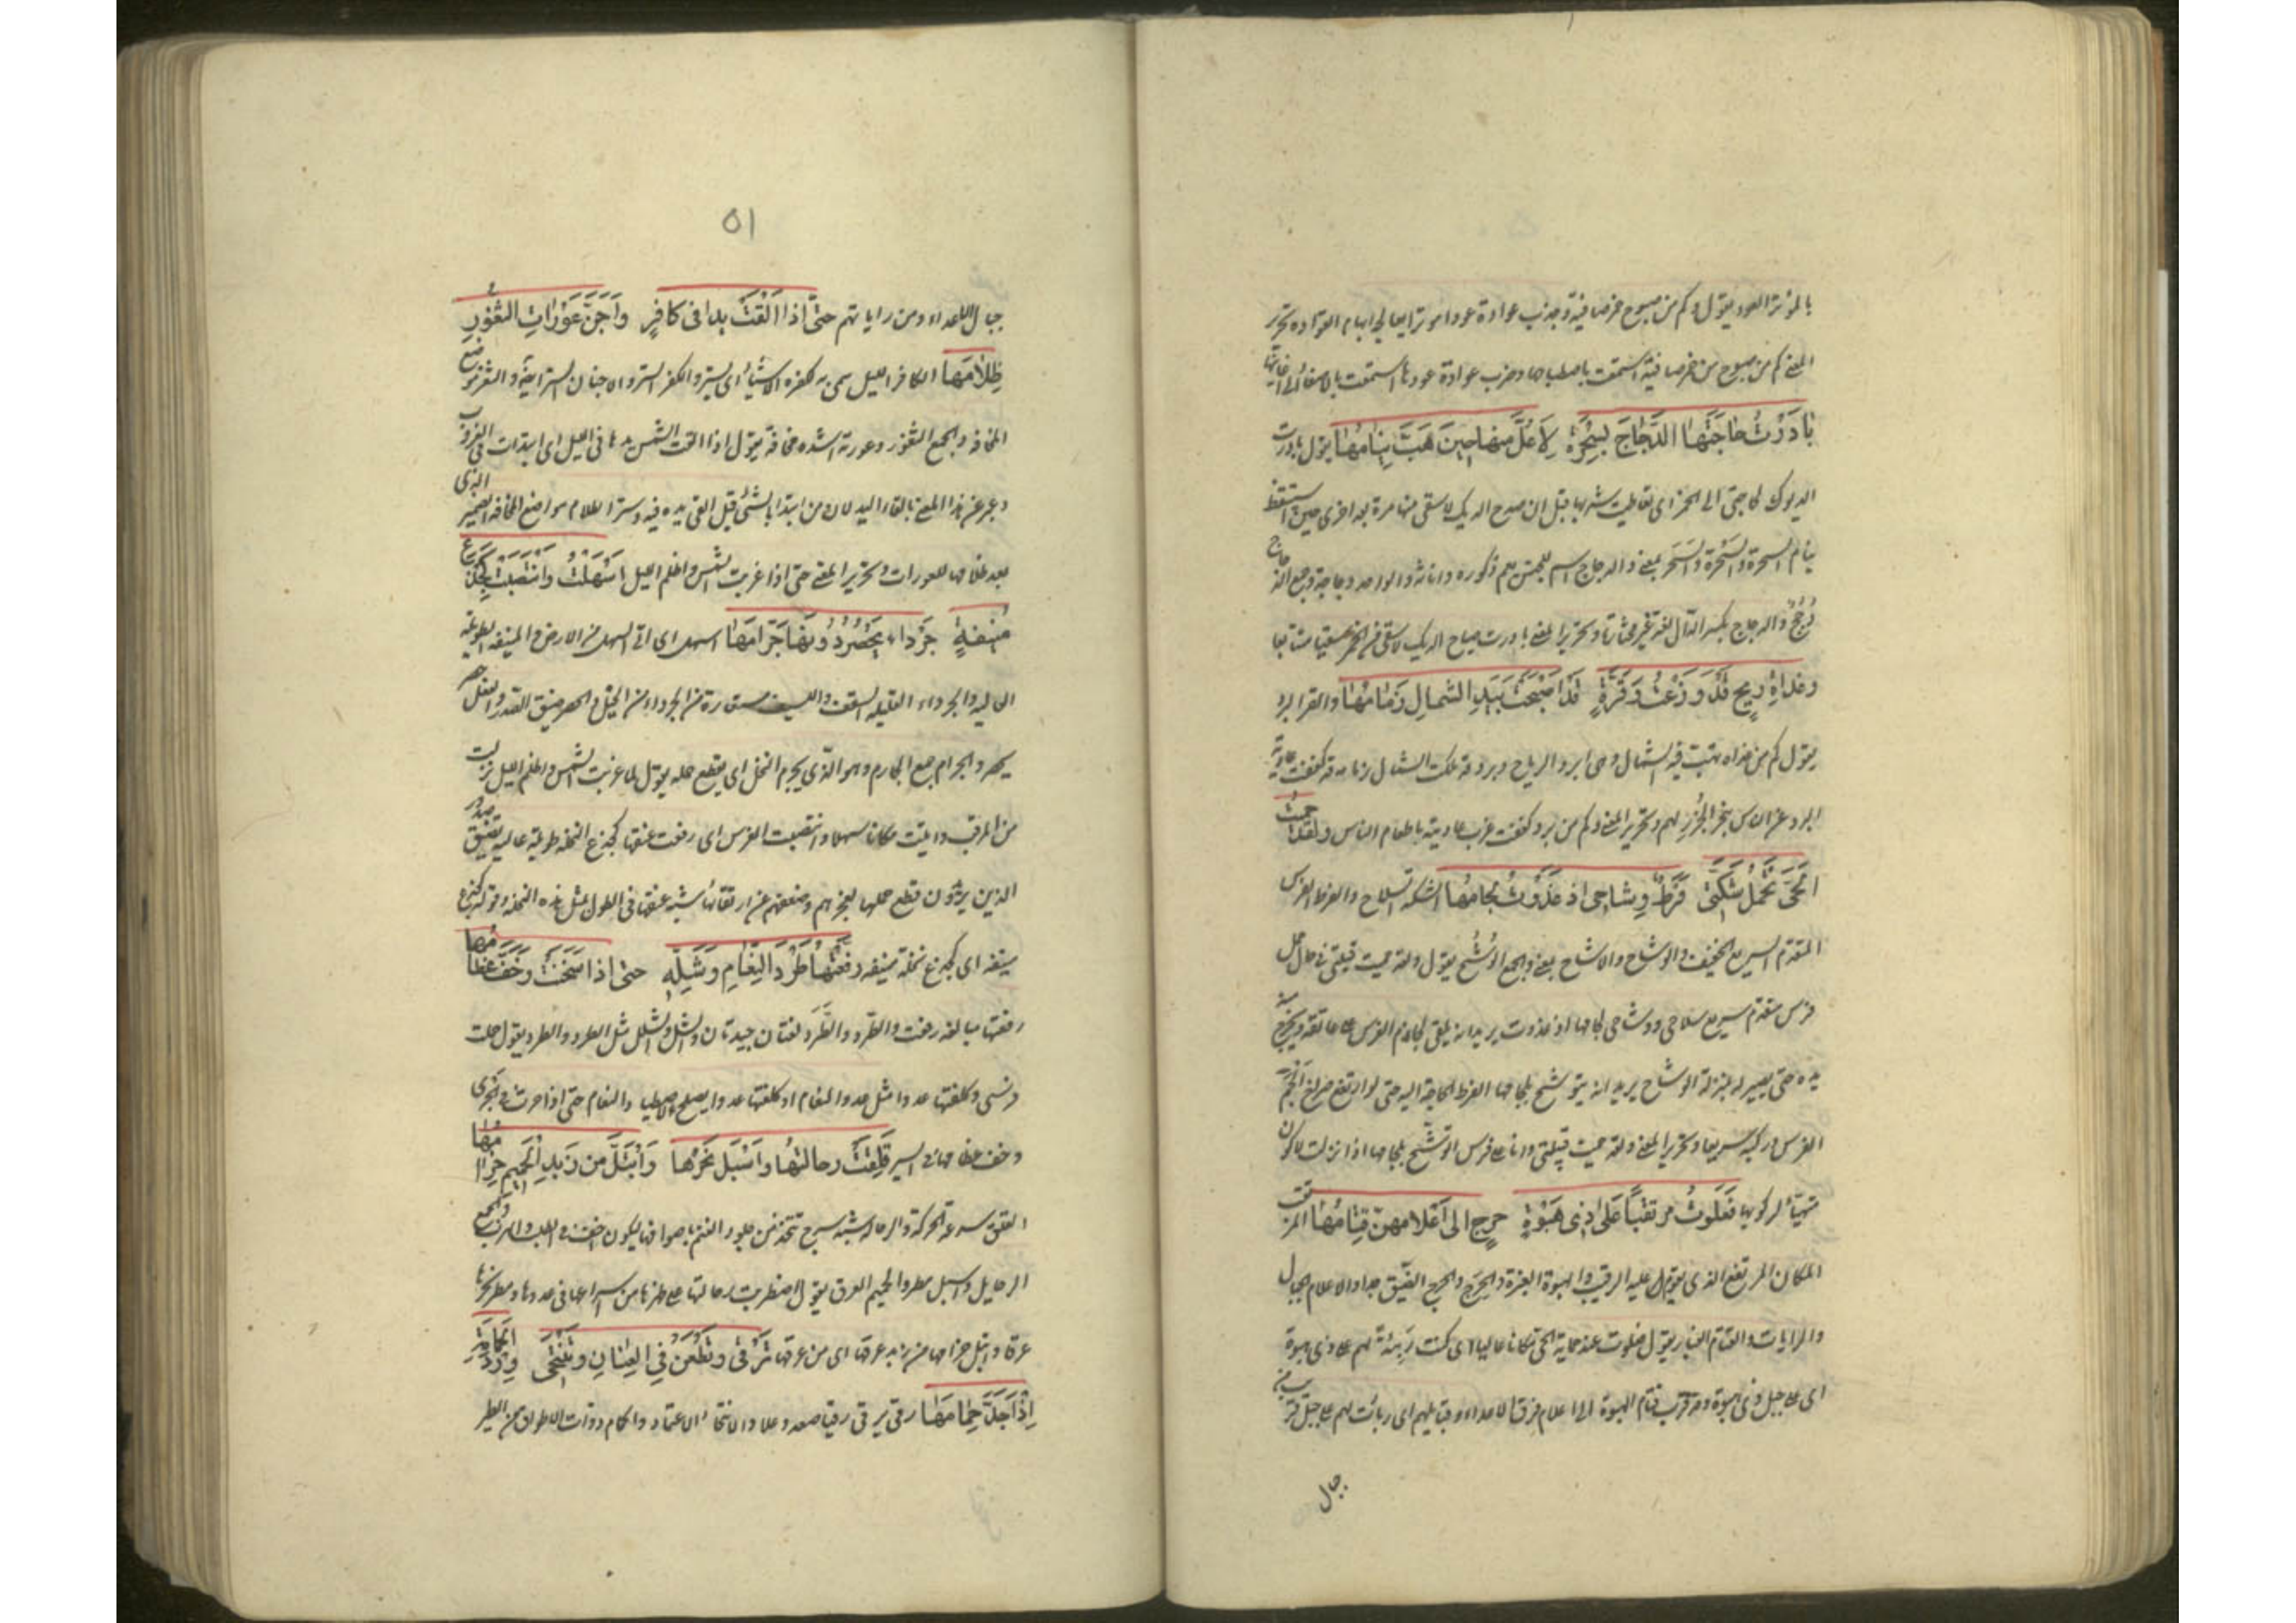 بالموتر العود يقول وكم من صبوح خمر صافية وجذب عوادة عودا موترا يعالجه ابهام العوادة وتحرير
المعنى كم من صبوح من خمر صافية استمتعت باصطباحها وضرب عوادة عودها استمتعت بالاصغاء الى اغانيها
بَادَرْتُ حَاجَتَهَا الدَّجَاجَ بِسُحْرَةٍ لِأُعَلَّ مِنْهَا حِينَ هَبَّ نِيَامُهَا يقول بادرت
الديوك لحاجتى الى الخمر اى تعاطيت شربها قبل ان صدح الديك لاسقى منها مرة بعد اخرى حين استيقظ
نيام السحرة والسُّحْرة والسَّحَر بمعنى والدجاج اسم للجنس يعم ذكوره واناثه والواحد دجاجة وجمع الدجاج
دُجُجٌ والدجاج بكسر الدال لغة غير مختارة وتحرير المعنى بادرت صياح الديك لاسقى من الخمر سقيا متتابعا
وغَدَاةِ رِيحٍ قَدْ وَزَعْتُ وَقَرَّةٍ قَدْ أَصْبَحَتْ بِيَدِ الشَّمَالِ زِمَامُهَا والقر البرد
يقول كم من غداة تهب فيه الشمال وهى ابرد الرياح وبرد قد ملكت الشمال زمامه قد كففت عادية
البرد عن الناس بنحر الجُزُر لهم وتحرير المعنى وكم من برد كففت غرب عاديته باطعام الناس ولَقَدْ حَمَيْتُ
الْحَىَّ تَحْمِلُ شِكَّتِى فُرُطٌ وِشَاحِى اِذْ غَدَوْتُ لِجَامُهَا الشكة السلاح والفرط الفرس
المتقدم السريع الخفيف والوشاح والاشاح بمعنى والجمع الوُشُح يقول ولقد حميت قبيلتى فى حال حمل
فرس متقدم سريع سلاحى ووشاحى لجامها اذ غدوت يريد انه يلقى لجام الفرس على عاتقه ويخرج منه
يده حتى يصير له بمنزلة الوشاح يريد انه يتوشح بلجامها لفرط الحاجة اليه حتى لو ارتفع صراخ ألجم
الفرس وركبه سريعا وتحرير المعنى ولقد حميت قبيلتى وانا على فرس اتوشح بلجامها اذا نزلت لاكون
متهيئا لركوبها فَعَلَوْتُ مُرْتَقِبًا عَلَى ذِى هَبْوَةٍ حَرِجٍ الى اَعْلَامِهِنَّ قَتَامُهَا المرتقب
المكان المرتفع الذى يقوم عليه الرقيب والهبوة الغبرة والحَرَج والحرج الضيق جدا والاعلام الجبال
والرايات والقتام الغبار يقول فعلوت عند حماية الحى مكانا عاليا اى كنت رَبِيئَة لهم على ذى هبوة
اى على جبل ذى هبوة وقد قرب قتام الهبوة الى اعلام فرق الاعداء وقبايلهم اى ربأت لهم على جبل قريب من
جبال
٥١
جبال الاعداء ومن راياتهم حَتَّى اِذَا اَلْقَتْ يَدًا فِى كَافِرٍ وأَجَنَّ عَوْرَاتِ الثُّغُورِ
ظَلَامُهَا الكافر الليل سمى به لكفره الاشياء اى لستره والكفر الستر والاجنان الستر ايضا والثغر موضع
المخافة والجمع الثغور وعورته اشده مخافة يقول اذا القت الشمس يدها فى الليل اى ابتدات فى الغروب
وعبر عن هذا المعنى بالقاء اليد لان من ابتدا بالشئ قيل القى يده فيه وستر الظلام مواضع المخافة الضمير الذى
بعد ظلامها للعورات وتحرير المعنى حتى اذا غربت الشمس واظلم الليل اَسْهَلْتُ وانْتَصَبَتْ كَجِذْعِ
مُنِيفَةٍ جَرْدَاءَ يَحْصَرُ دُونَهَا جُرَّامُهَا اسهل اى اتى السهل من الارض والمنيفة الطويلة
العالية والجرداء القليلة السعف والليف مستعارة من الجرداء من الخيل والحصر ضيق الصدر والفعل حصر
يحصر والجرام جمع الجارم وهو الذى يجرم النخل اى يقطع حمله يقول لما غربت الشمس واظلم الليل نزلت
من المرقب واتيت مكانا سهلا وانتصبت الفرس اى رفعت عنقها كجذع النخلة طويلة عالية تضيق صدور
الذين يريدون قطع حملها لعجزهم وضعفهم عن ارتقائها شبه عنقها فى الطول بمثل هذه النخلة وقوله كجذع
منيفة اى كجذع نخلة منيفة رَفَّعْتُهَا طَرَدَ النَّعَامِ وَشَلَّهُ حتى اِذَا سَخِنَتْ وخَفَّ عِظَامُهَا
رفعتها مبالغة رفعت والطَّرْد والطَّرَد لغتان جيدتان والشل والشلل مثل الطرد والطرد يقول حملت
فرسى وكلفتها عدوا مثل عدو النعام او كلفتها عدوا يصلح لاصطياد النعام حتى اذا حرت فى الجرى
وخف عظامها فى السير قَلِقَتْ رِحَالَتُهَا واَسْبَلَ نَحْرُهَا وَابْتَلَّ مِنْ زَبَدِ الْحَمِيمِ حِزَامُهَا
القلق سرعة الحركة والرحالة شبه سرج تتخذ من جلود الغنم باصوافها ليكون اخف فى الطلب والهرب والجمع
الرحايل واسبل مطر والحميم العرق يقول اضطربت رحالتها على ظهرها من اسراعها فى عدوها ومطر نحرها
عرقا وابتل حزامها من زبد عرقها اى من عرقها تَرْقَى وتَطْعَنُ فِى الْعِنَانِ وَتَنْتَحِى وِرْدَ الْحَمَامَةِ
اِذْ اَجَدَّ حَمَامُهَا رقى يرقى رقيا صعد وعلا والانتحاء الاعتماد والحمام ذوات الاطواق من الطير